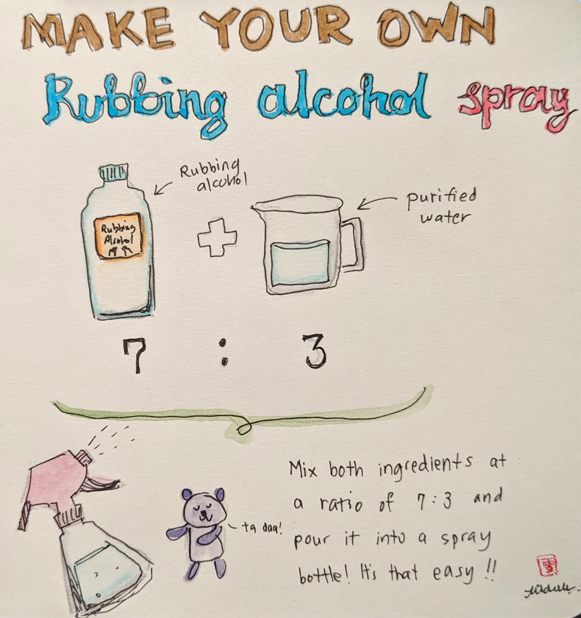 MAKE YOUR OWN
Rubbing alcohol spray
Rubbing
alcohol
purified
water
Rubbing
Alcohol
7 : 3
Mix both ingredients at
a ratio of 7:3 and
ta daa!
pour it into a spray
bottle! It's that easy !!